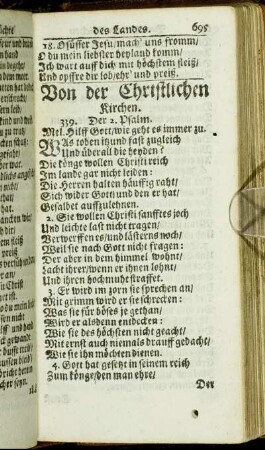 des Landes. 695
18. O süsser Jesu/mach' uns fromm/
O du mein liebster heyland komm/
Ich wart auff dich mit höchstem fleiß/
Und opffre dir lob/ehr' und preiß.
Von der Christlichen
Kirchen.
339. Der 2. Psalm.
Mel. Hilff Gott/wie geht es immer zu.
WAs toben itzund fast zugleich
Und überall die heyden?
Die könge wollen Christi reich
Im lande gar nicht leiden:
Die Herren halten häuffig raht/
Sich wider Gott und den er hat/
Gesalbet auffzulehnen.
2. Sie wollen Christi sanfftes joch
Und leichte last nicht tragen/
Verwerffen es/und lästerns noch/
Weil sie nach Gott nicht fragen:
Der aber in dem himmel wohnt/
Lacht ihrer/wenn er ihnen lohnt/
Und ihren hochmuht straffet.
3. Er wird im zorn sie sprechen an/
Mit grimm wird er sie schrecken:
Was sie für böses je gethan/
Wird er alsdenn entdecken:
Wie sie des höchsten nicht geacht/
Mit ernst auch niemals drauff gedacht/
Wie sie ihn möchten dienen.
4. Gott hat gesetzt in seinem reich
Zum könge/den man ehre/
Der